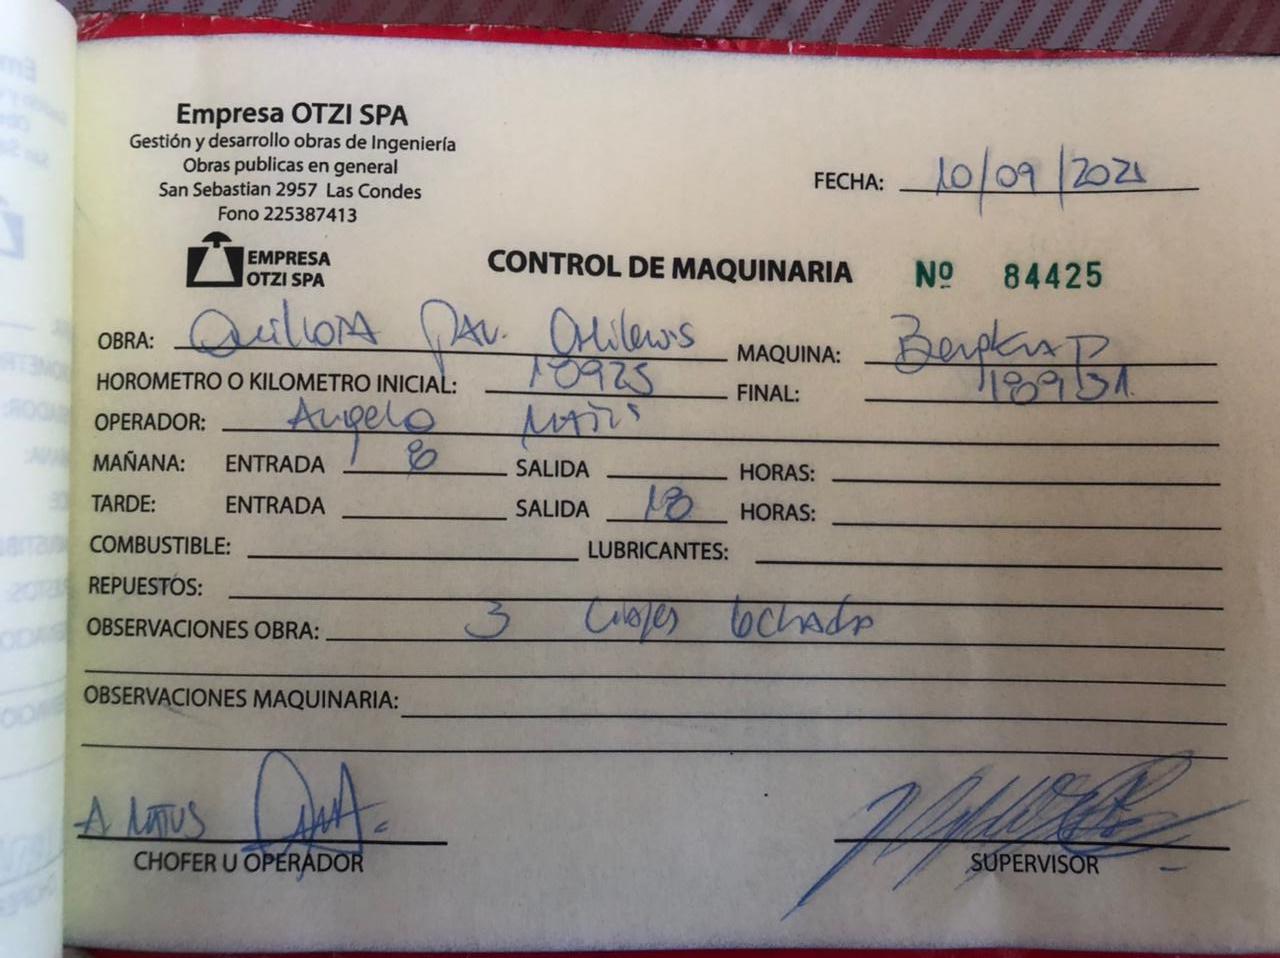 Empresa OTZI SPA
Gestión y desarrollo obras de Ingeniería
Obras publicas en general
San Sebastian 2957 Las Condes
Fono 225387413
FECHA: 10/09/2021
EMPRESA
OTZI SPA
CONTROL DE MAQUINARIA Nº 84425
OBRA: Quillota Pav.
MAQUINA:
HOROMETRO O KILOMETRO INICIAL: 18925 FINAL: 18931
OPERADOR: Angelo
MAÑANA: ENTRADA 8 SALIDA HORAS:
TARDE: ENTRADA SALIDA 18 HORAS:
COMBUSTIBLE: LUBRICANTES:
REPUESTOS:
OBSERVACIONES OBRA: 3 lechada
OBSERVACIONES MAQUINARIA:
A MATUS
CHOFER U OPERADOR
SUPERVISOR